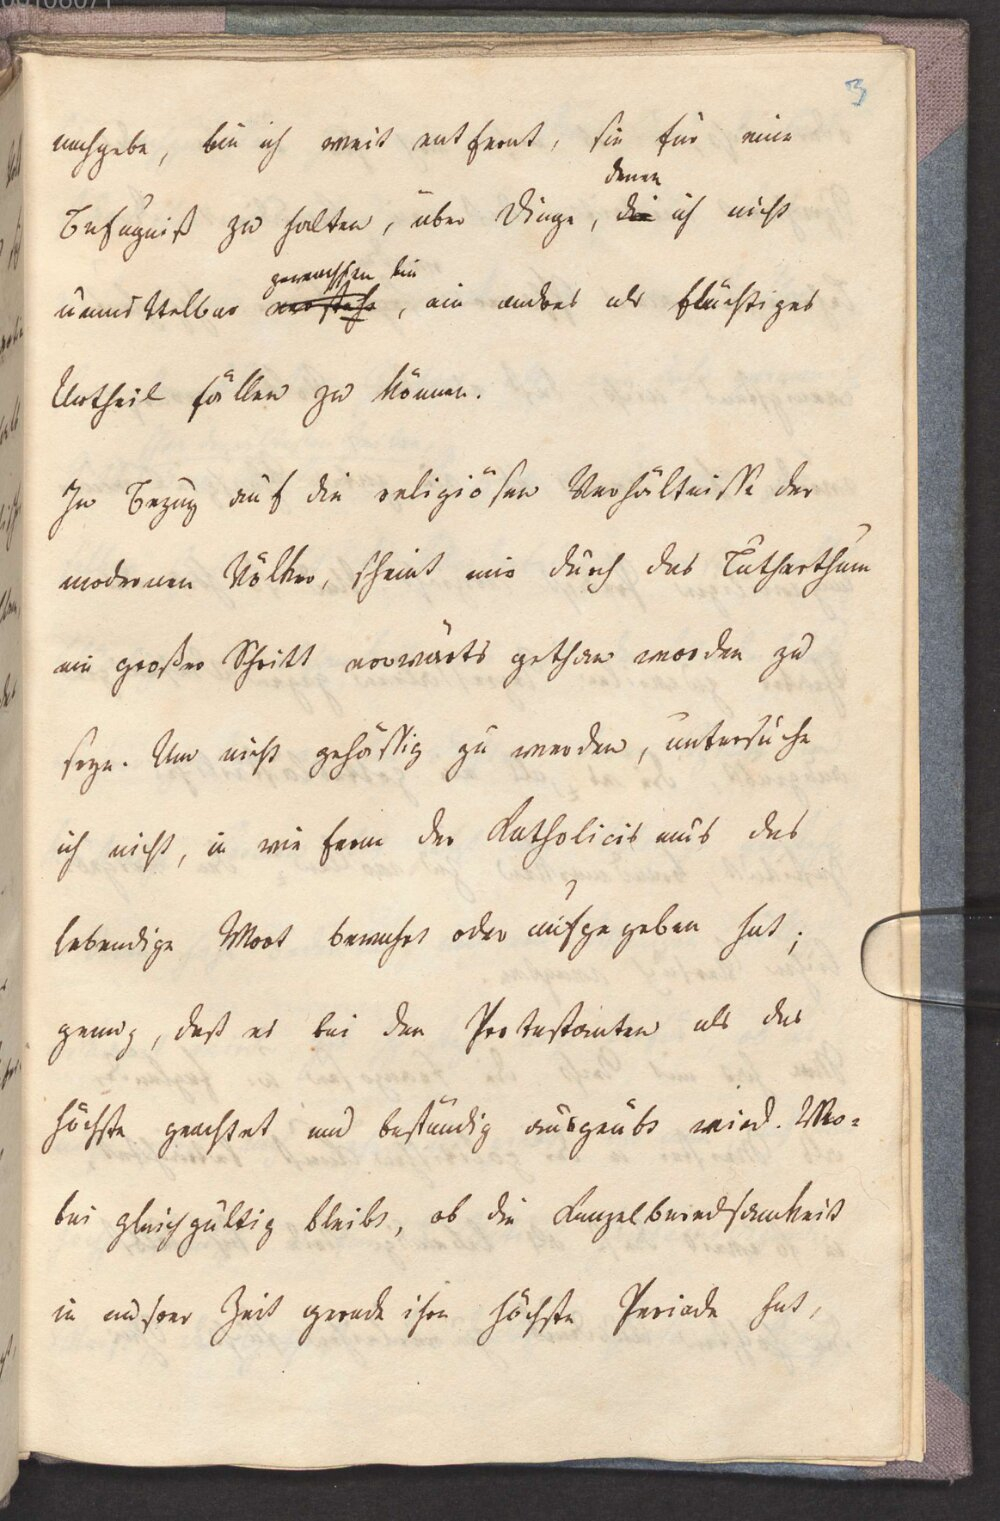 3
nachgebe, bin ich weit entfernt, sie für eine
denen
Befugniß zu halten, über Dinge, die ich nicht
gewachsen bin
unmittelbar verstehe, ein andres als flüchtiges
Urtheil fällen zu können.
In Bezug auf die religiösen Verhältnisse der
modernen Völker, scheint mir durch das Lutherthum
ein großer Schritt vorwärts gethan worden zu
seyn. Um nicht gehässig zu werden, untersuche
ich nicht, in wie fern der Katholicismus das
lebendige Wort bewahrt oder aufgegeben hat;
genug, daß es bei den Protestanten als das
höchste geachtet und beständig ausgeübt wird. Wo-
bei gleichgültig bleibt, ob die Kanzelberedsamkeit
in unsrer Zeit gerade ihre höchste Periode hat,